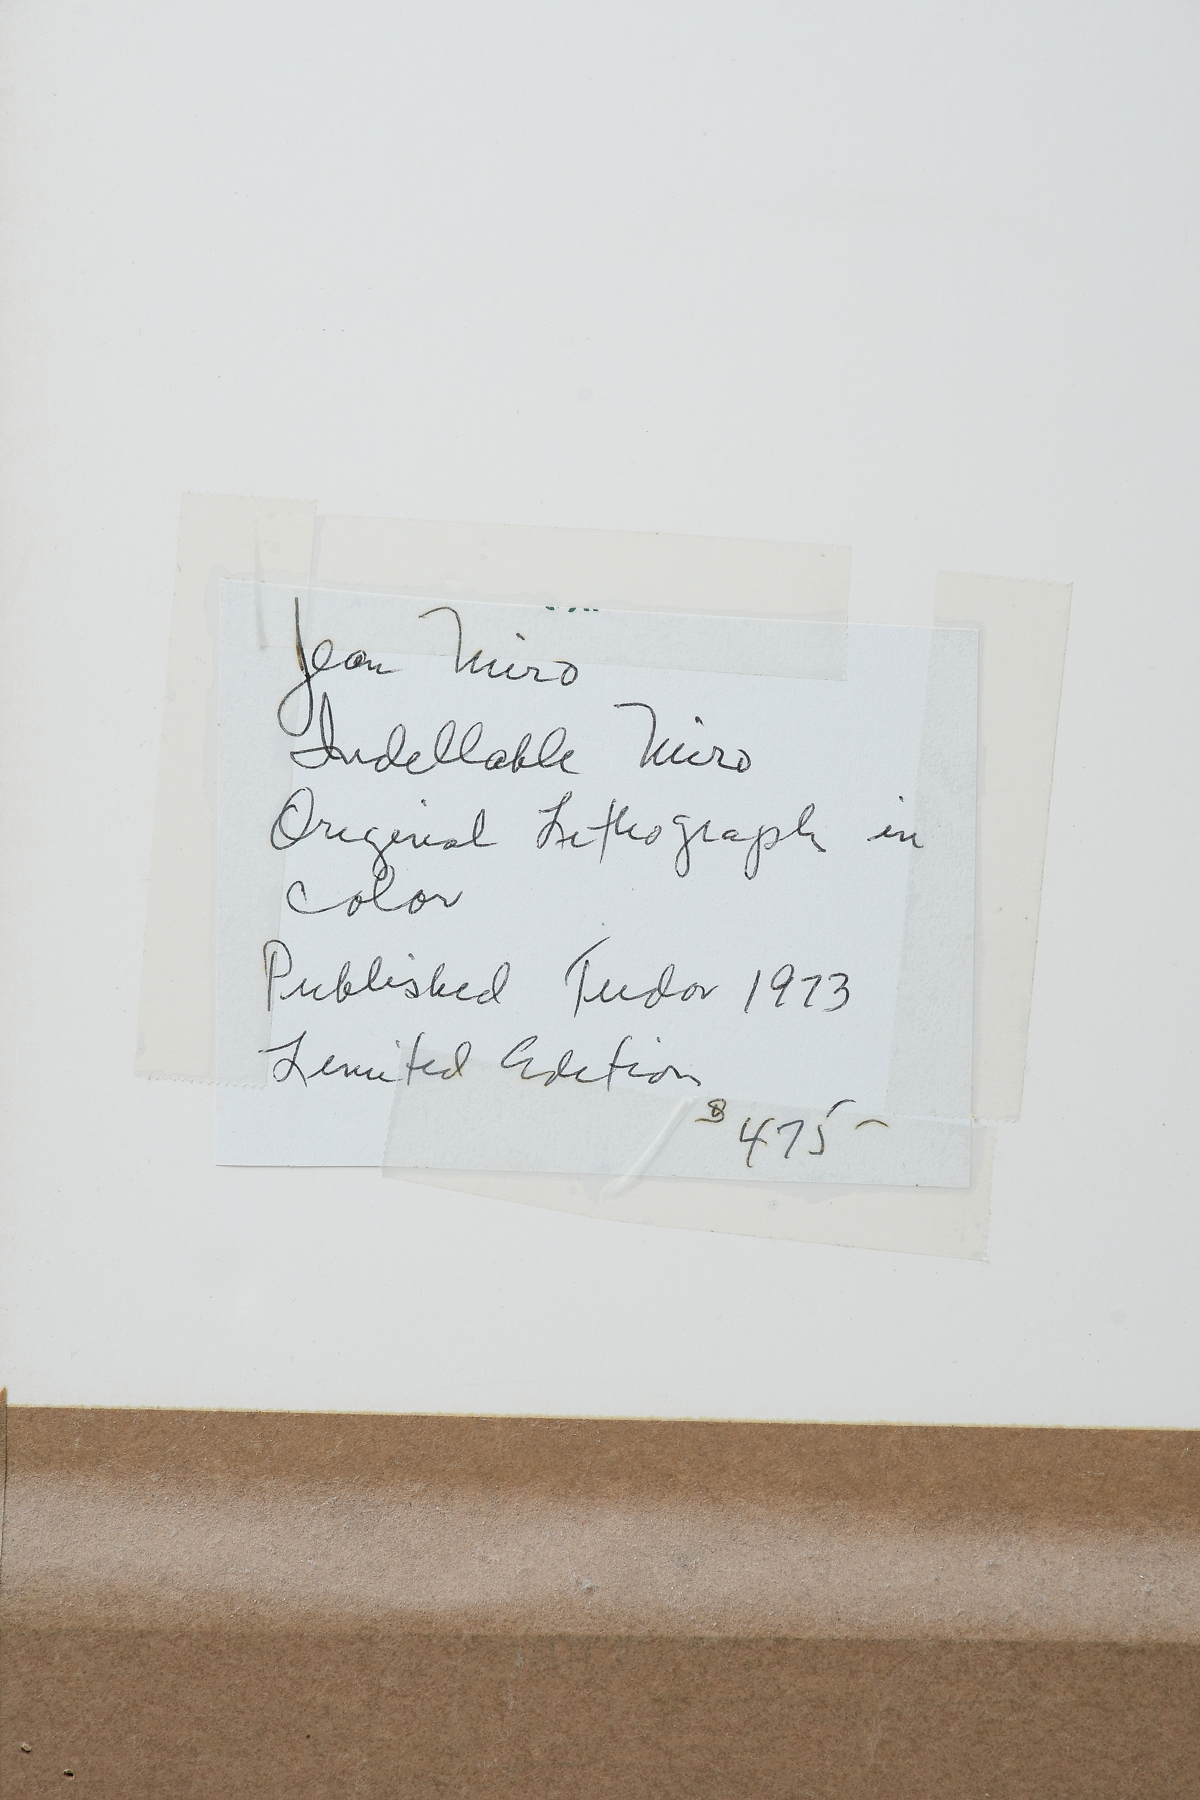 Jean Miro
Indellable Miro
Original Lithograph in
color
Published Tudor 1973
Limited Edition
$475-